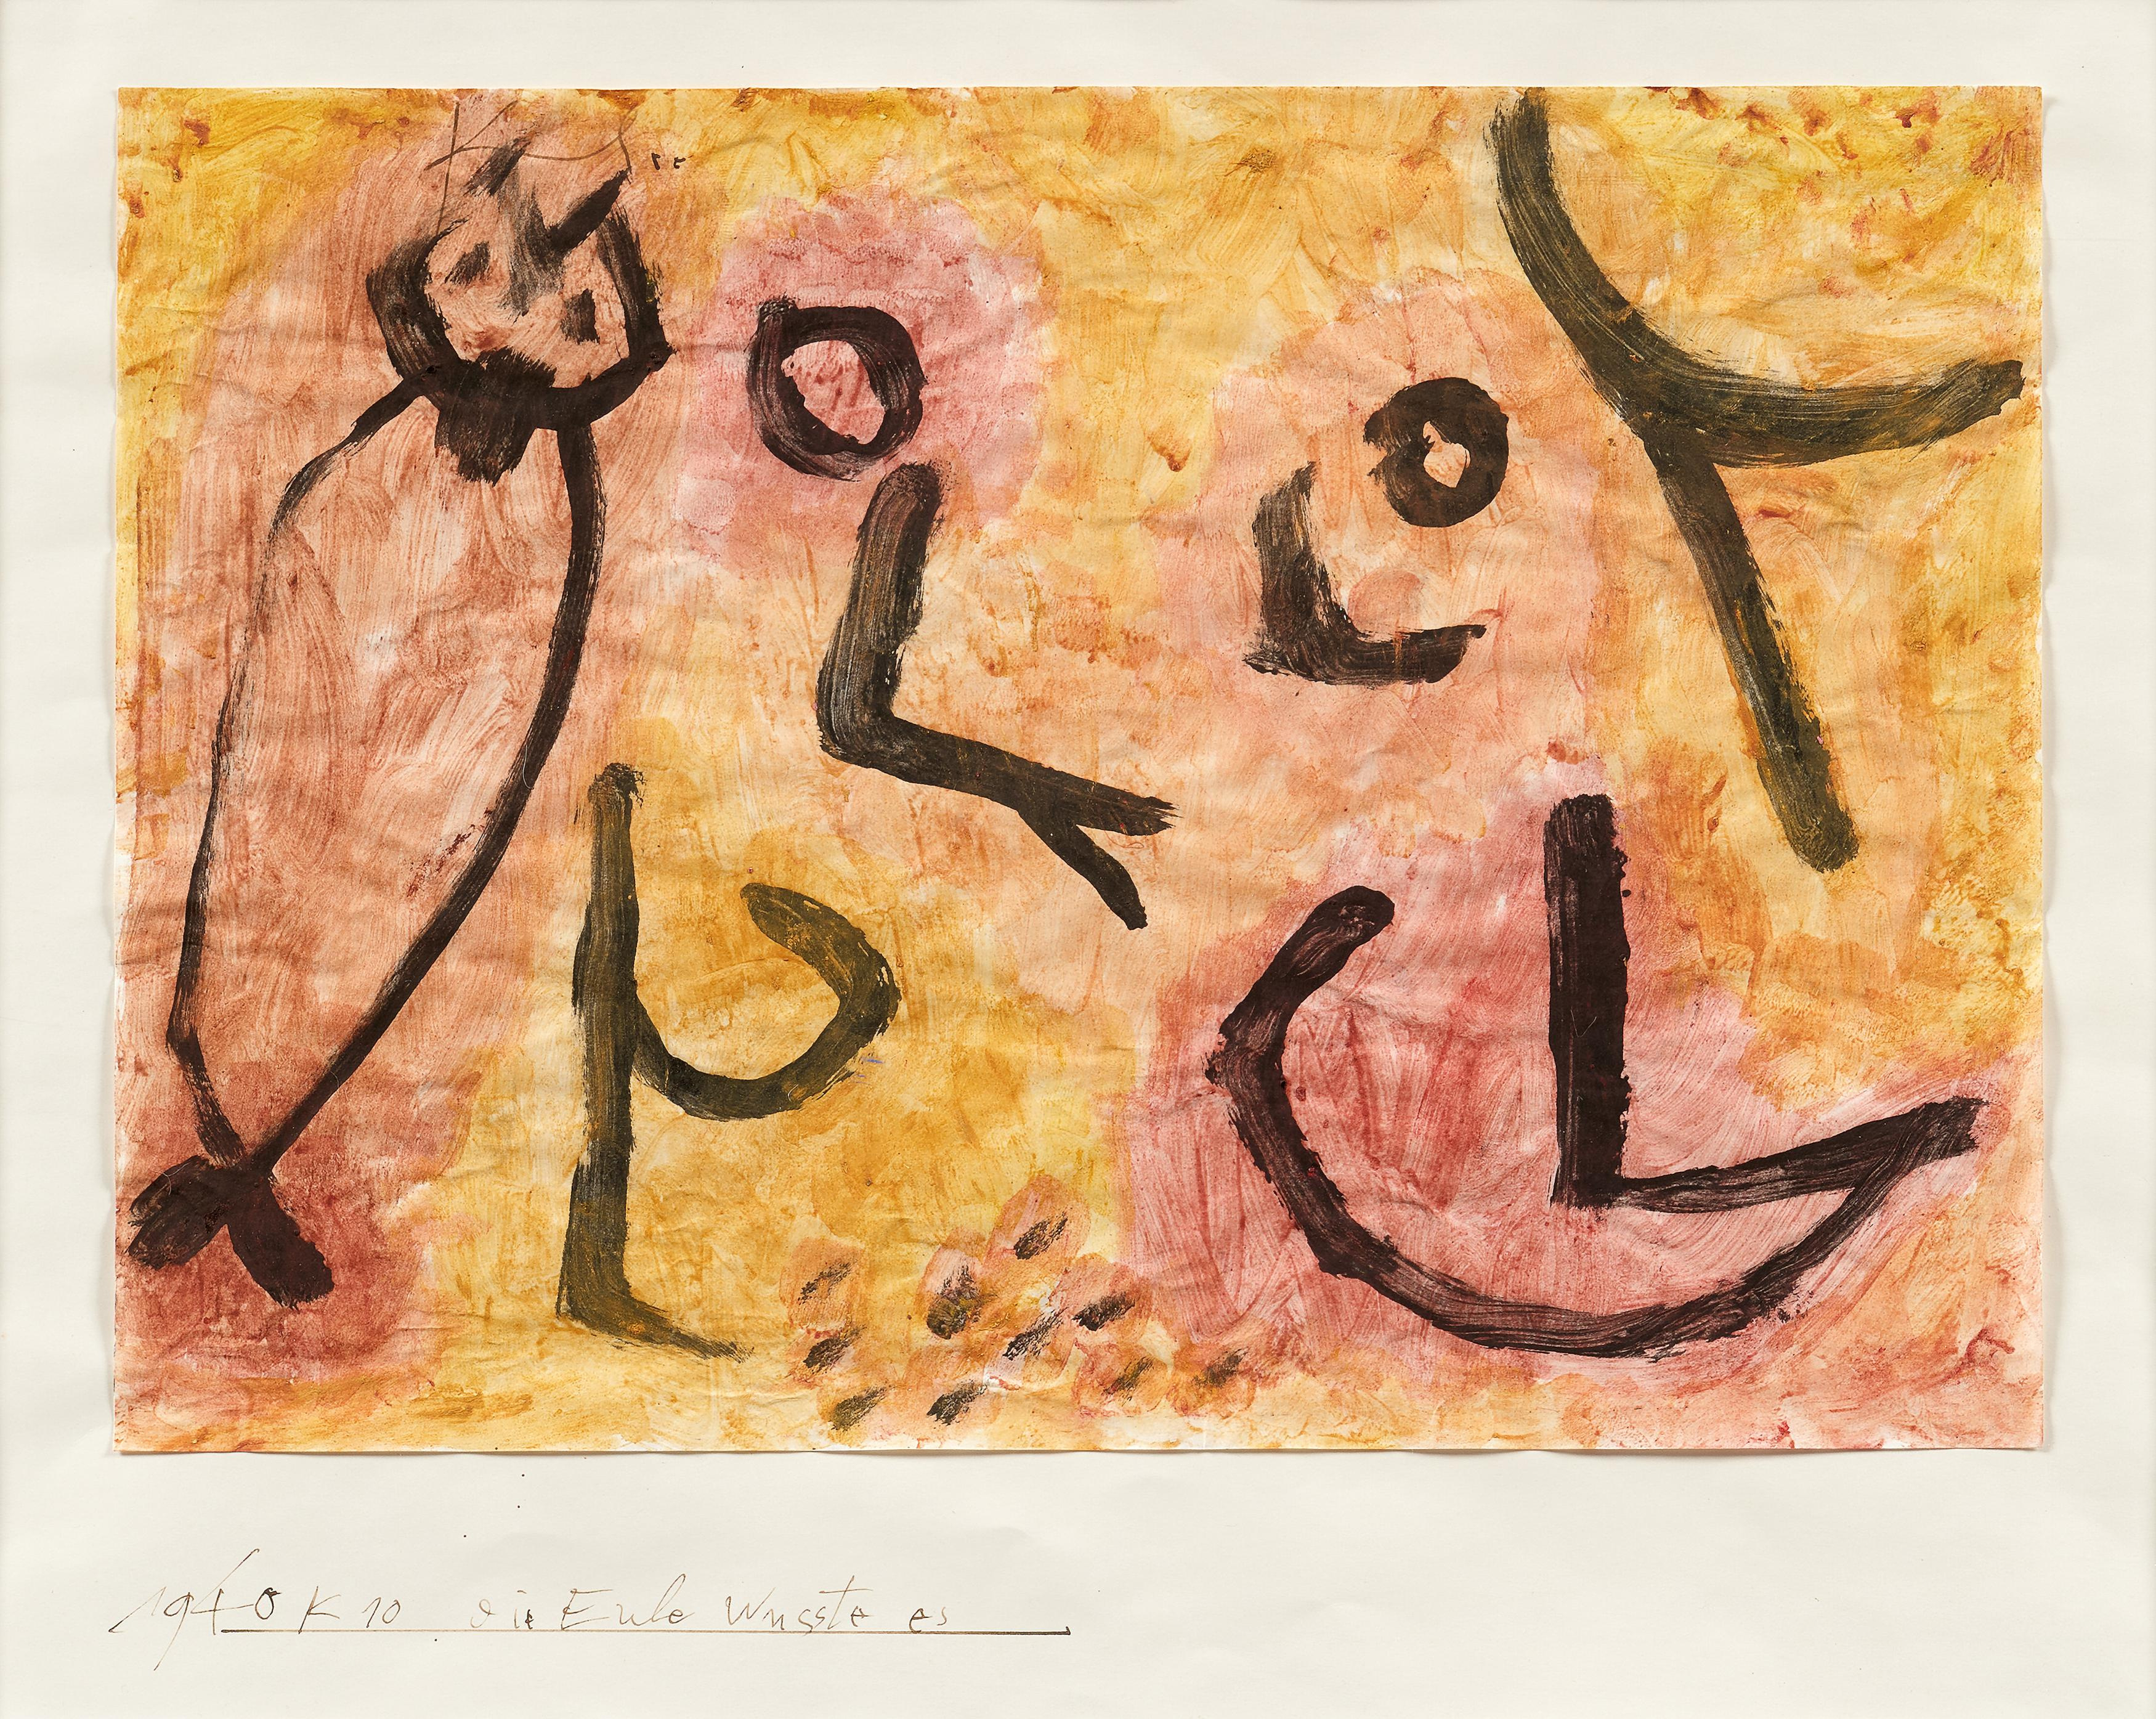 Klee
1940 K 10 die Eule wusste es